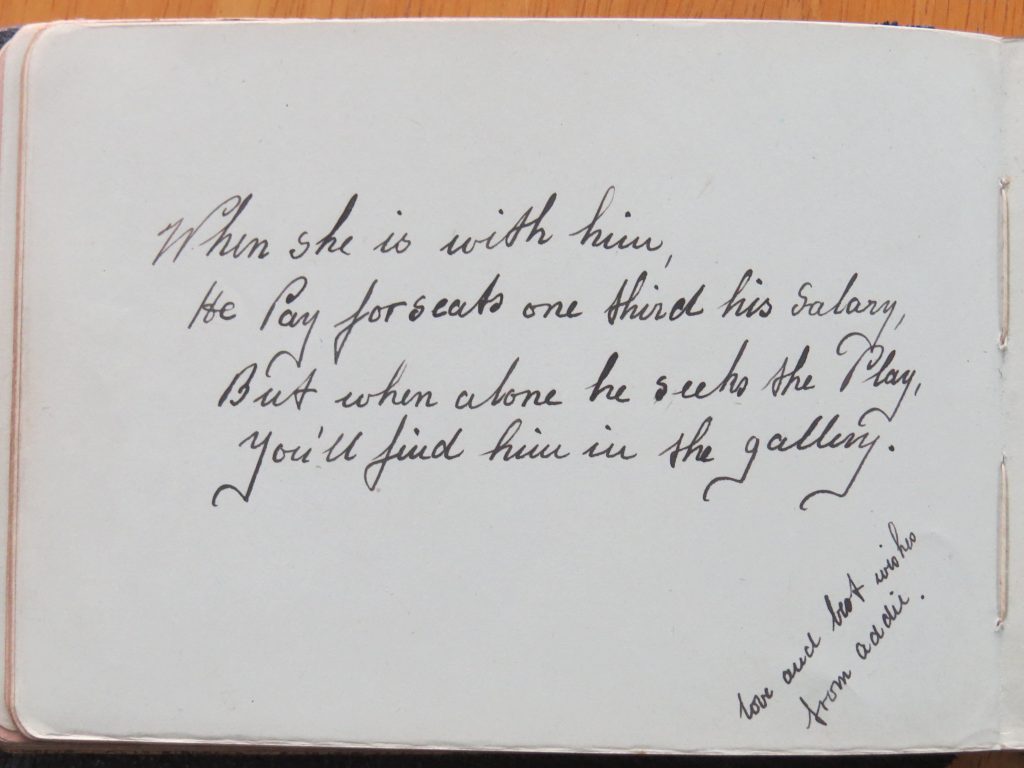 When she is with him,
He Pay for seats one third his Salary,
But when alone he seeks the Play,
You'll find him in the gallery.
love and best wishes
from addie.